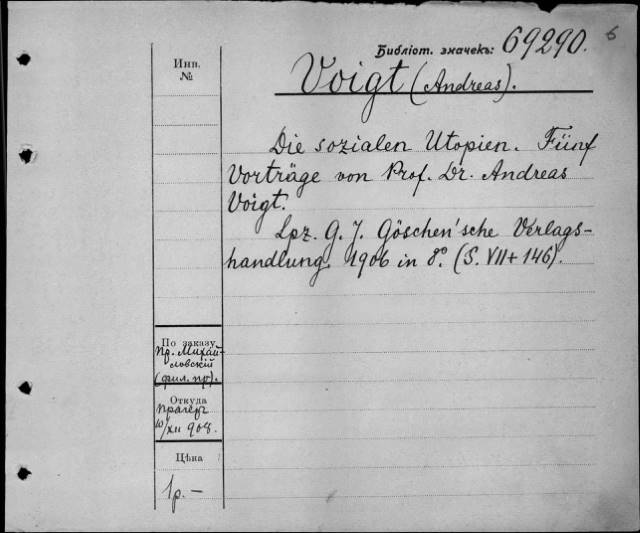 6
Библіот. значекъ: 69290.
Инв.
№
Voigt (Andreas).
Die sozialen Utopien. Fünf
Vorträge von Prof. Dr. Andreas
Voigt.
Lpz. G. J. Göschen'sche Verlags-
handlung. 1906 in 8º. (S. VII + 146).
По заказу
Пр. Михай-
ловскій
(фил. пр).
Откуда
Прагеръ
10/XII 908.
Цѣна
1р. –